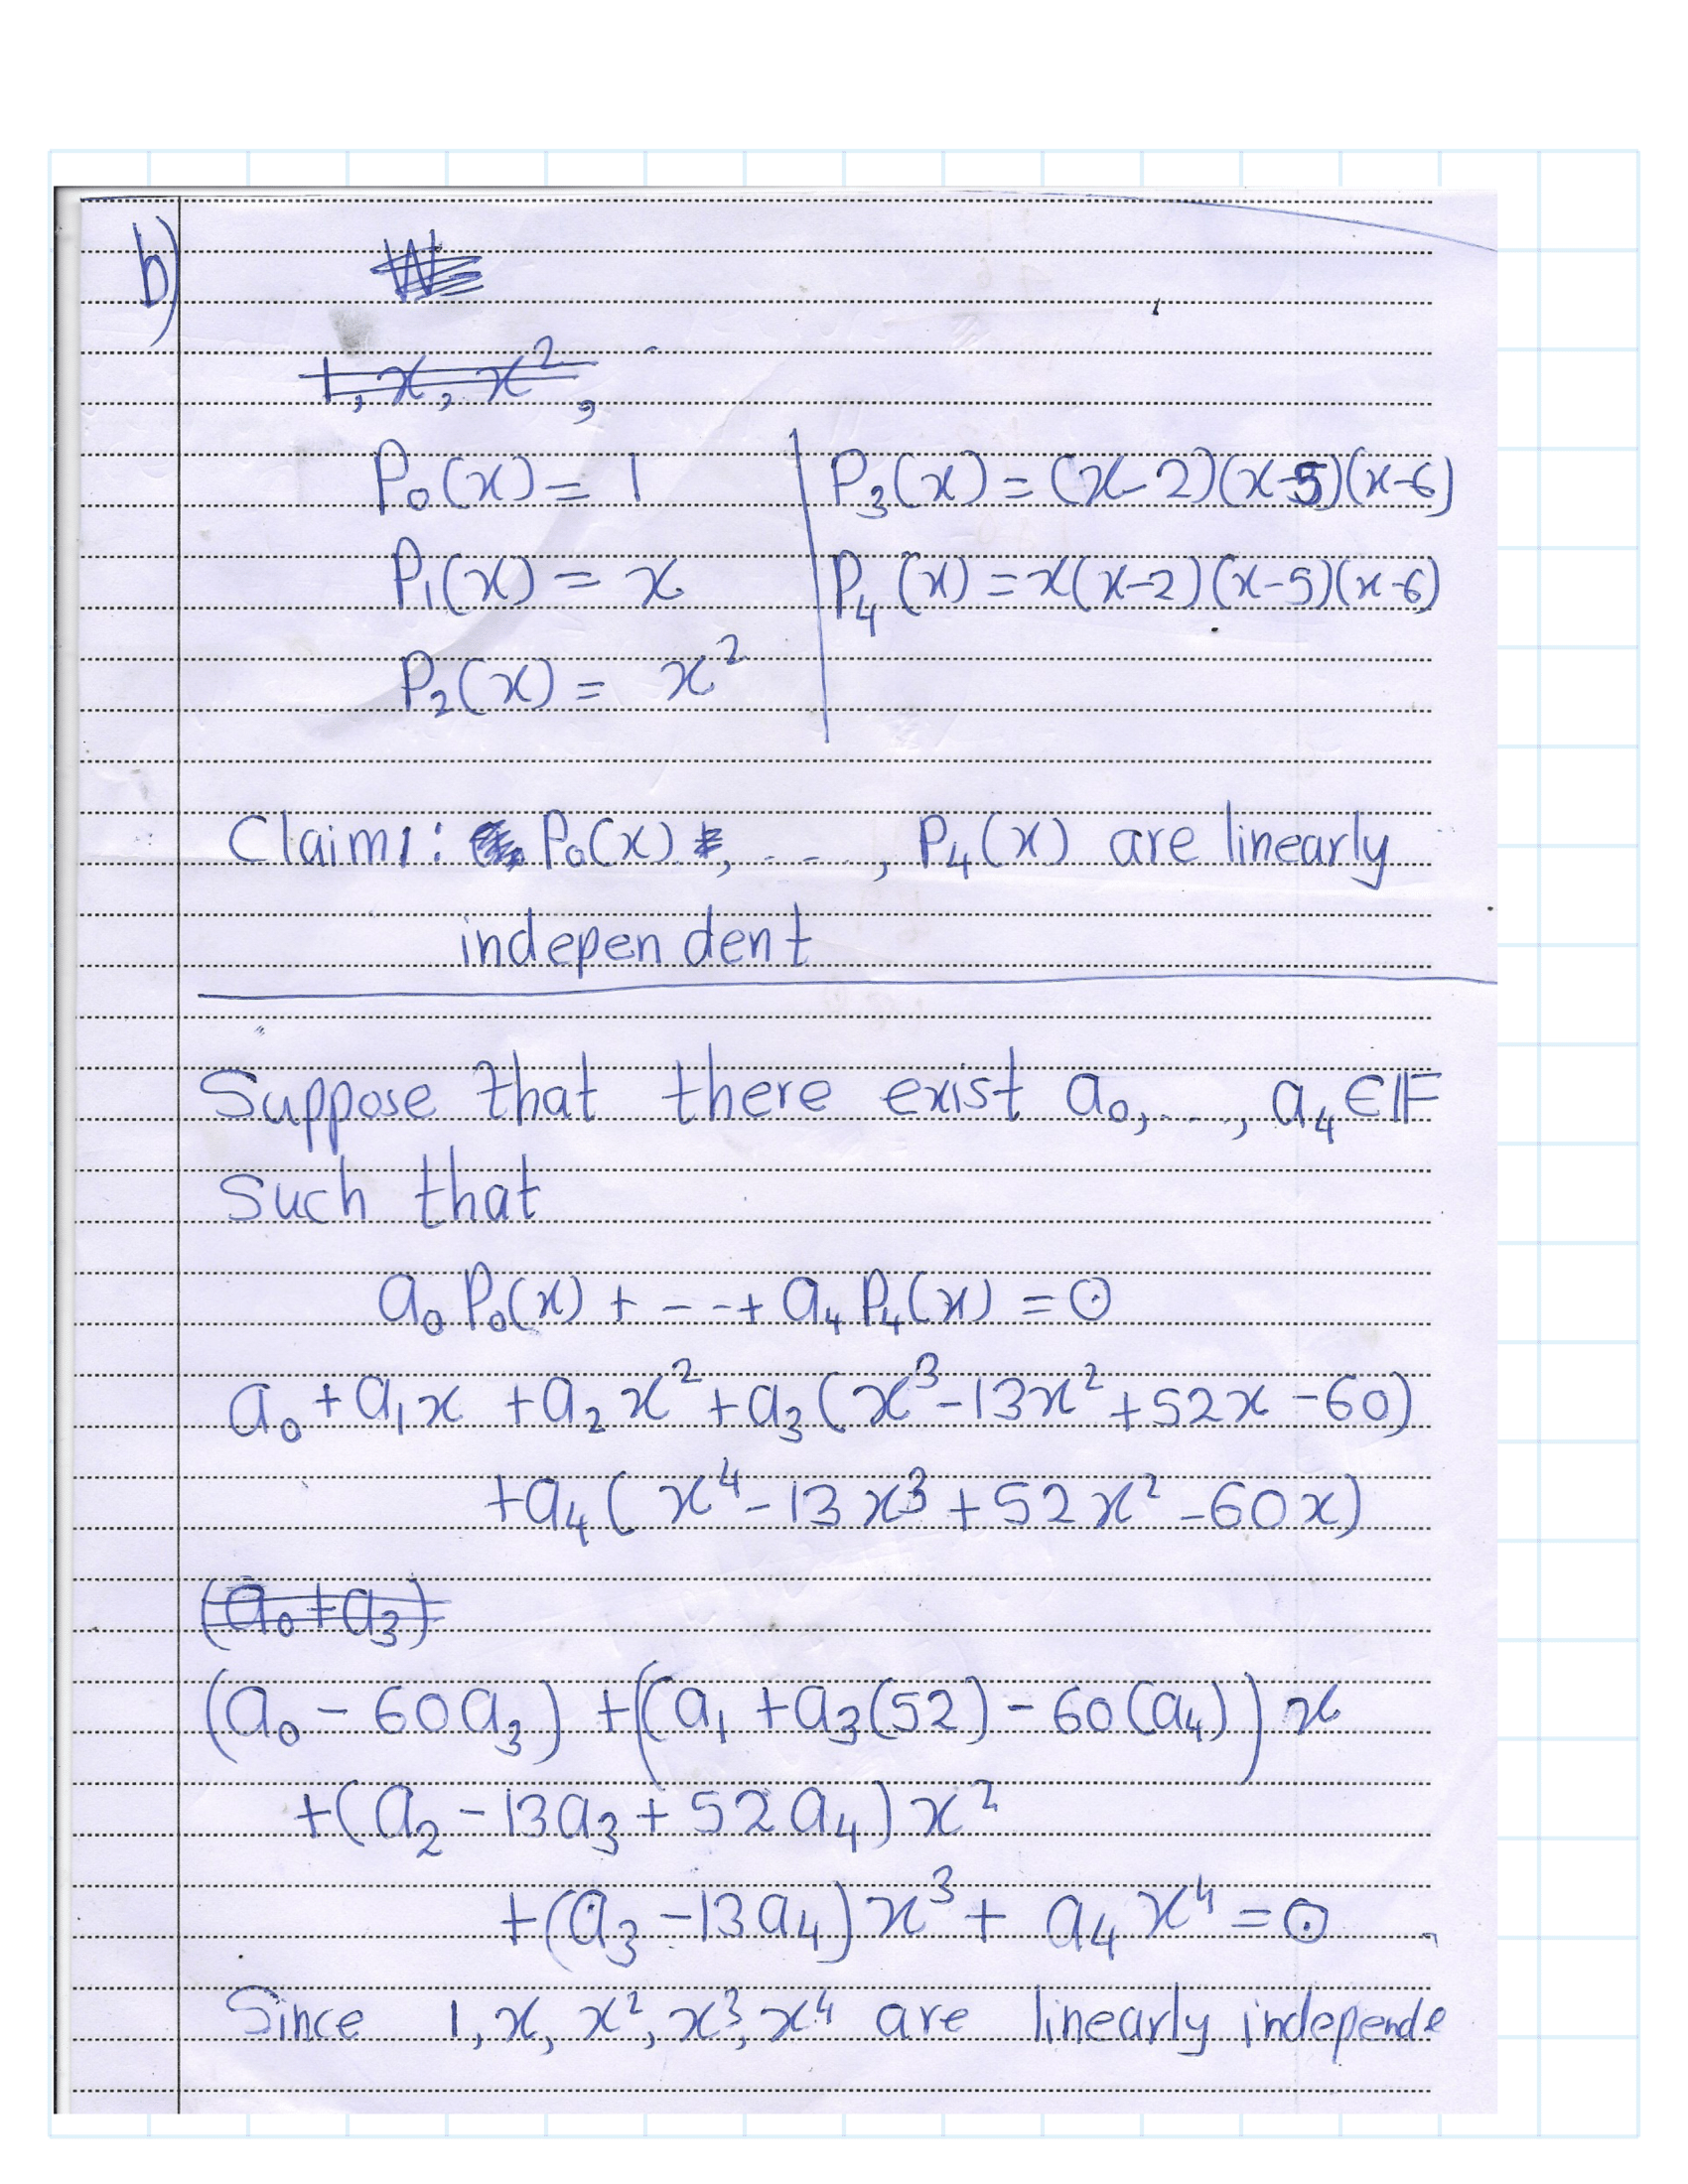 b)
1, x, x²,
P₀(x) = 1
P₃(x) = (x-2)(x-5)(x-6)
P₁(x) = x
P₄(x) = x(x-2)(x-5)(x-6)
P₂(x) = x²
Claim 1: P₀(x), ..., P₄(x) are linearly
independent
Suppose that there exist a₀, ..., a₄ ∈ 𝔽
Such that
a₀P₀(x) + --+ a₄P₄(x) = 0
a₀ + a₁x + a₂x² + a₃(x³-13x²+52x-60)
+a₄(x⁴-13x³+52x²-60x)
(a₀+a₃)
(a₀ - 60a₃) + (a₁ + a₃(52) - 60(a₄)) x
+(a₂ - 13a₃ + 52a₄) x²
+(a₃ - 13a₄) x³ + a₄x⁴ = 0
Since 1, x, x², x³, x⁴ are linearly independe